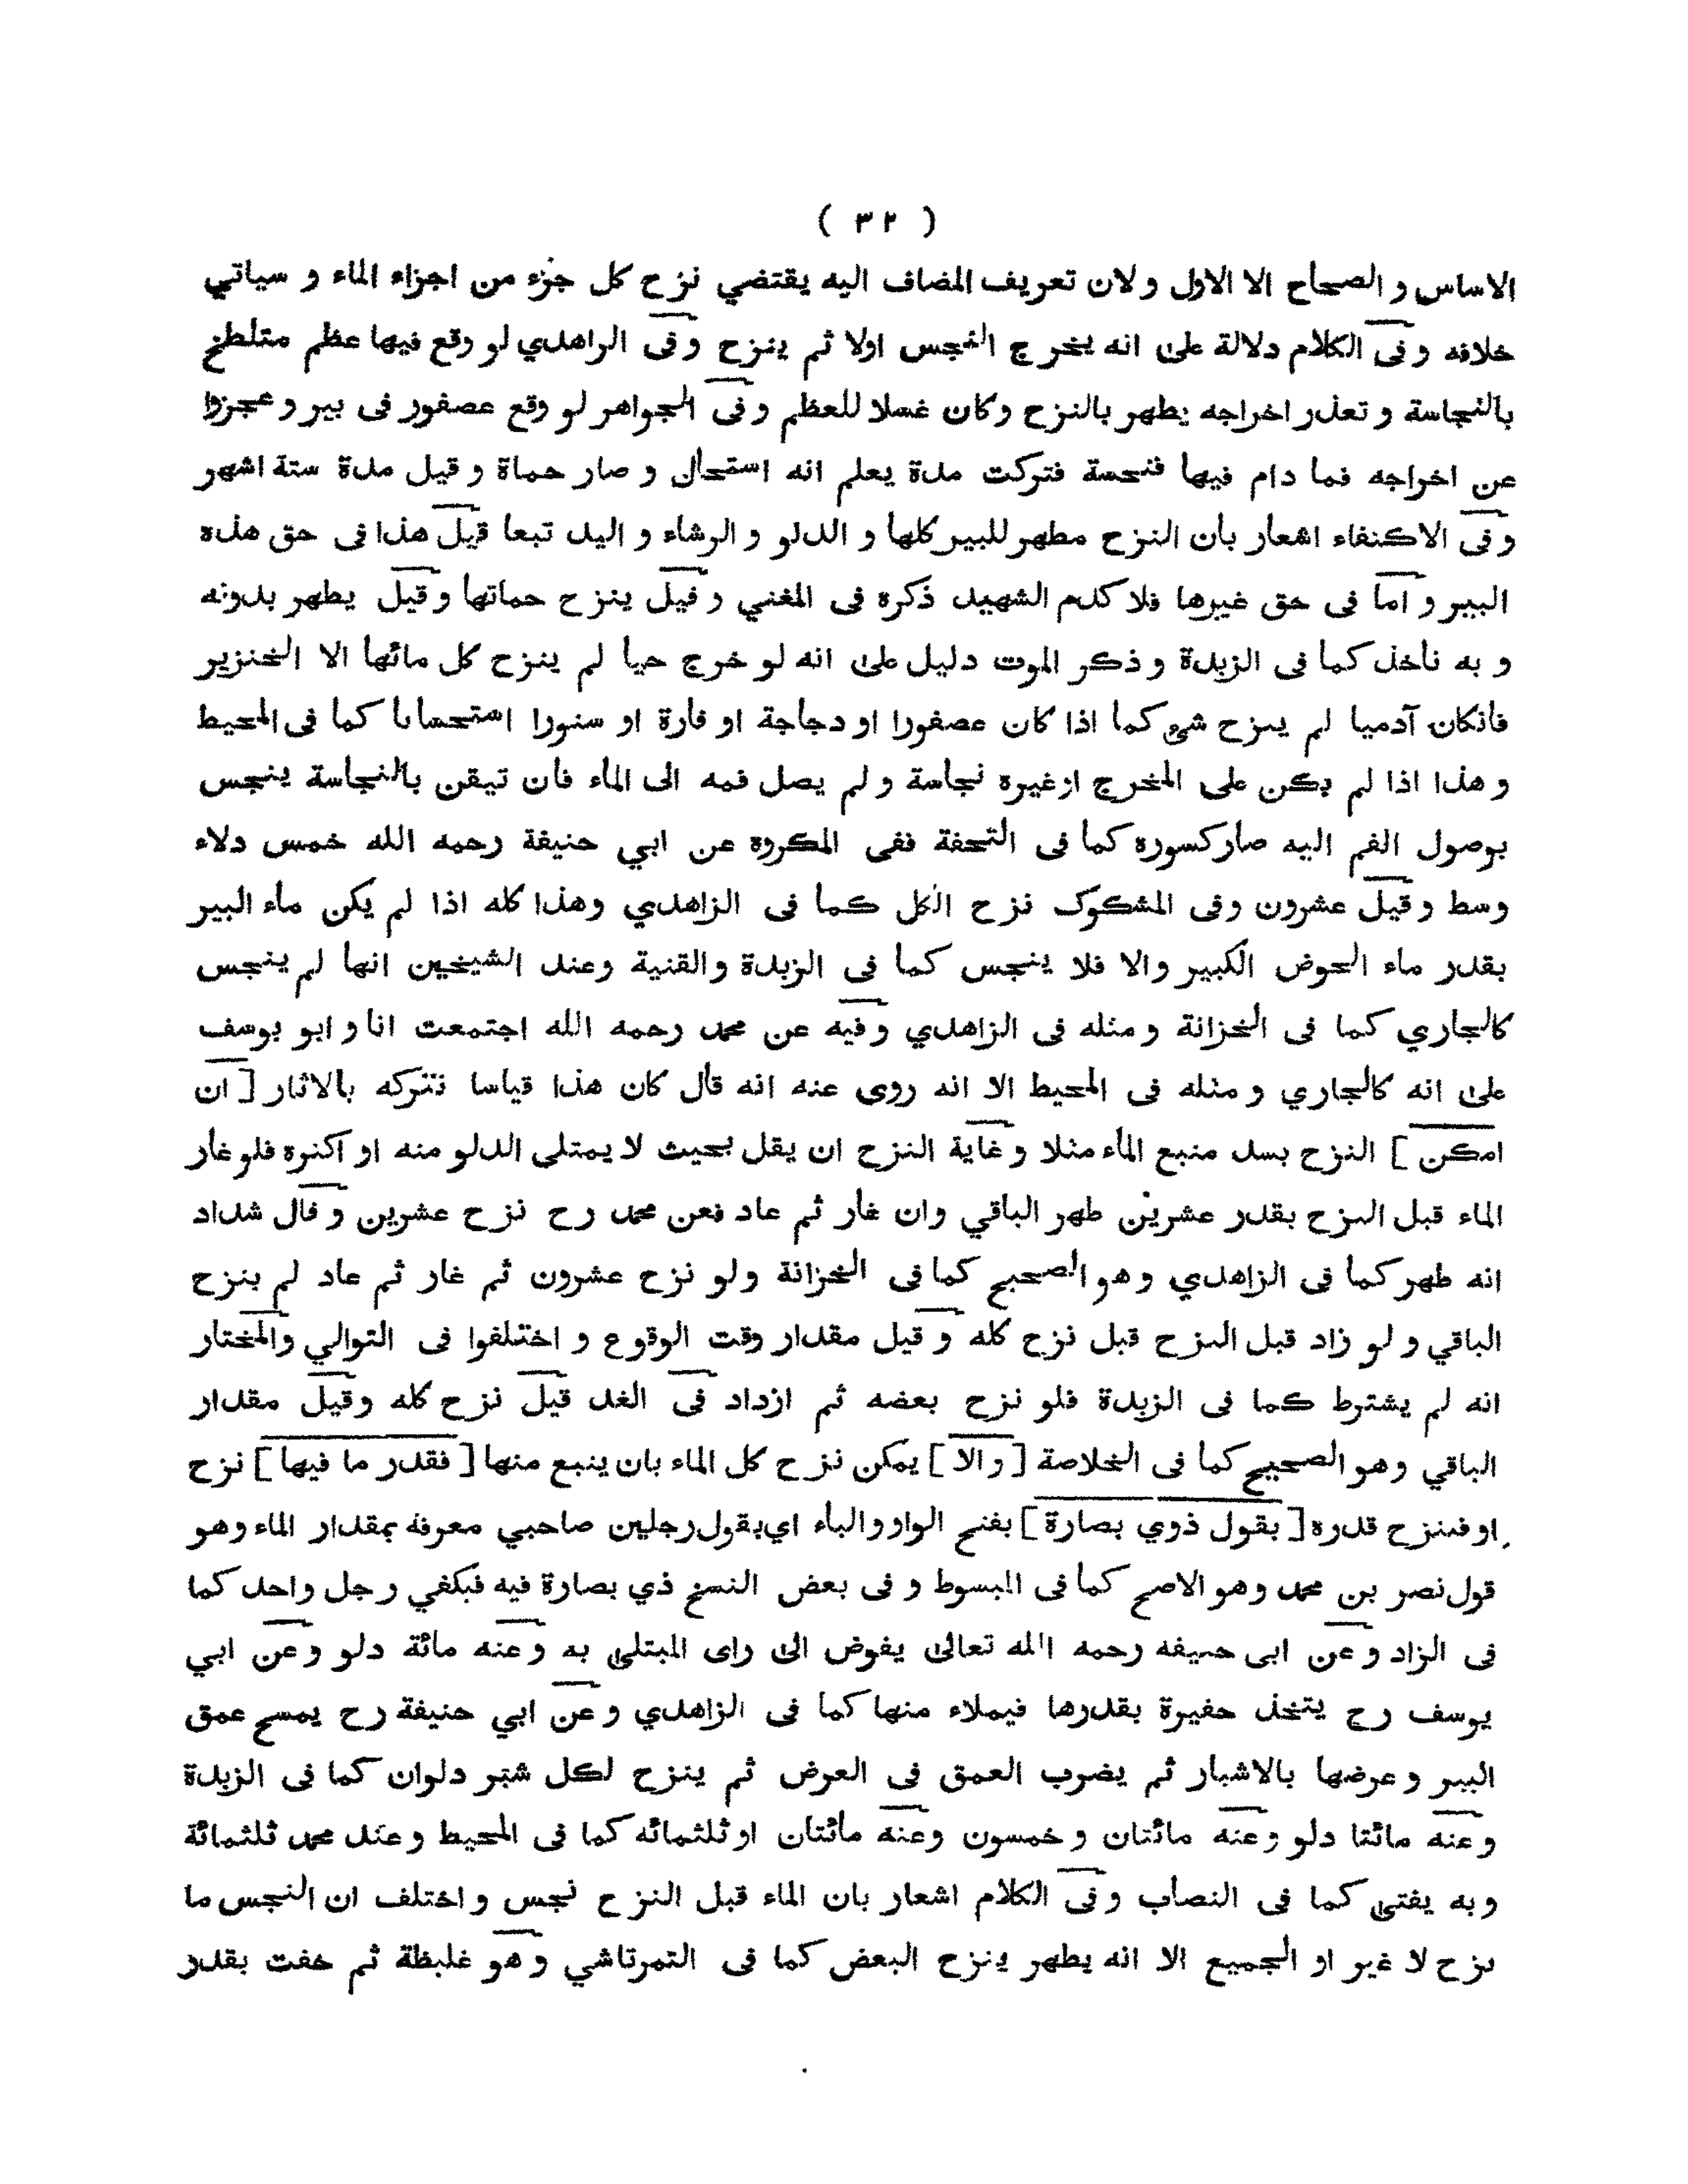 ( ٣٢ )
الاساس و الصحاح الا الاول و لان تعريف المضاف اليه يقتضي نزح كل جزء من اجزاء الماء و سياتي
خلافه و فى الكلام دلالة على انه يخرج النجس اولا ثم ينزح و فى الزاهدي لو وقع فيها عظم متلطخ
بالنجاسة و تعذر اخراجه يطهر بالنزح و كان غسلا للعظم و فى الجواهر لو وقع عصفور فى بير و عجزوا
عن اخراجه فما دام فيها فنجسة فتركت مدة يعلم انه استحال و صار حماة و قيل مدة ستة اشهر
و فى الاكتفاء اشعار بان النزح مطهر للبير كلها و الدلو و الرشاء و اليد تبعا قيل هذا فى حق هذه
البير و اما فى حق غيرها فلا كدم الشهيد ذكره فى المغني و قيل ينزح حماتها و قيل يطهر بدونه
و به ناخذ كما فى الزبدة و ذكر الموت دليل على انه لو خرج حيا لم ينزح كل مائها الا الخنزير
فانكان آدميا لم ينزح شئ كما اذا كان عصفورا او دجاجة او فارة او سنورا استحسانا كما فى المحيط
و هذا اذا لم يكن على المخرج ازغيره نجاسة و لم يصل فمه الى الماء فان تيقن بالنجاسة ينجس
بوصول الفم اليه صار كسوره كما فى التحفة ففى المكروه عن ابي حنيفة رحمه الله خمس دلاء
وسط و قيل عشرون وفى المشكوك نزح الكل كما فى الزاهدي وهذا كله اذا لم يكن ماء البير
بقدر ماء الحوض الكبير والا فلا ينجس كما فى الزبدة والقنية وعند الشيخين انها لم ينجس
كالجاري كما فى الخزانة و مثله فى الزاهدي و فيه عن محمد رحمه الله اجتمعت انا و ابو يوسف
على انه كالجاري و مثله فى المحيط الا انه روى عنه انه قال كان هذا قياسا نتركه بالاثار [ ان
امكن ] النزح بسد منبع الماء مثلا و غاية النزح ان يقل بحيث لا يمتلى الدلو منه او اكثره فلو غار
الماء قبل النزح بقدر عشرين طهر الباقي وان غار ثم عاد فعن محمد رح نزح عشرين و قال شداد
انه طهر كما فى الزاهدي وهو الصحيح كما فى الخزانة ولو نزح عشرون ثم غار ثم عاد لم ينزح
الباقي و لو زاد قبل النزح قبل نزح كله و قيل مقدار وقت الوقوع و اختلفوا فى التوالي والمختار
انه لم يشترط كما فى الزبدة فلو نزح بعضه ثم ازداد فى الغد قيل نزح كله وقيل مقدار
الباقي وهو الصحيح كما فى الخلاصة [ و الا ] يمكن نزح كل الماء بان ينبع منها [ فقدر ما فيها ] نزح
او فينزح قدره [ بقول ذوي بصارة ] بفتح الواو والباء اي بقول رجلين صاحبي معرفة بمقدار الماء وهو
قول نصر بن محمد وهو الاصح كما فى المبسوط و فى بعض النسخ ذي بصارة فيه فيكفي رجل واحد كما
فى الزاد و عن ابى حنيفه رحمه الله تعالى يفوض الى راى المبتلى به و عنه مائة دلو و عن ابي
يوسف رح يتخذ حفيرة بقدرها فيملاء منها كما فى الزاهدي و عن ابي حنيفة رح يمسح عمق
البير و عرضها بالاشبار ثم يضرب العمق فى العرض ثم ينزح لكل شبر دلوان كما فى الزبدة
و عنه مائتا دلو و عنه مائتان و خمسون وعنه مائتان او ثلثمائه كما فى المحيط و عند محمد ثلثمائة
و به يفتى كما فى النصاب و فى الكلام اشعار بان الماء قبل النزح نجس و اختلف ان النجس ما
نزح لا غير او الجميع الا انه يطهر ينزح البعض كما فى التمرتاشي و هو غليظة ثم خفت بقدر